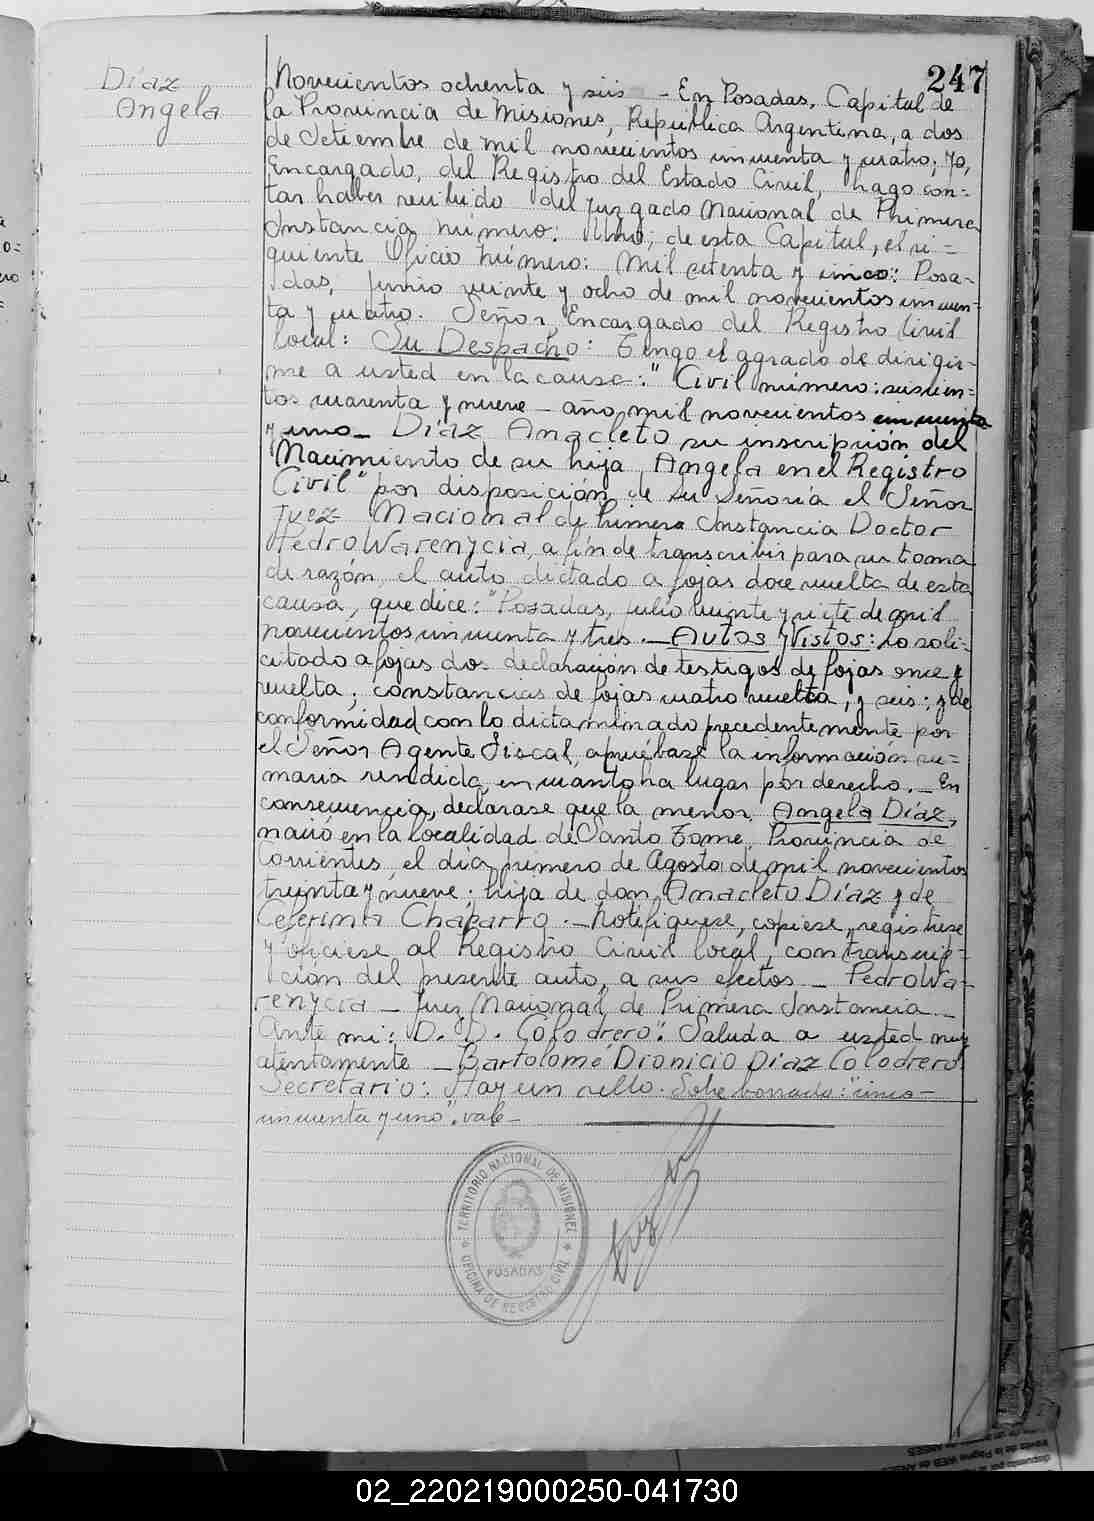 247
Díaz
Angela
Novecientos ochenta y seis - En Posadas, Capital de
la Provincia de Misiones, República Argentina, a dos
de Setiembre de mil novecientos cincuenta y cuatro; yo,
Encargado, del Registro del Estado Civil, hago cons=
tar haber recibido del Juzgado Nacional de Primera
Instancia número: Uno; de esta Capital, el si=
guiente Oficio número: mil setenta y cinco: Posa-
das, Junio veinte y ocho de mil novecientos cincuen-
ta y cuatro. Señor Encargado del Registro Civil
local: Su Despacho: Tengo el agrado de dirigir-
me a usted en la causa: "Civil número: seiscien=
tos cuarenta y nueve - año mil novecientos cincuenta
y uno - Díaz Anacleto su inscripción del
Nacimiento de su hija Angela en el Registro
Civil" por disposición de Su Señoría el Señor
Juez Nacional de Primera Instancia Doctor
Pedro Warenycia, a fin de transcribir para su toma
de razón, el auto dictado a fojas doce vuelta de esta
causa, que dice: "Posadas, julio veinte y siete de mil
novecientos cincuenta y tres. - Autos y Vistos: Lo soli=
citado a fojas dos declaración de testigos de fojas once y
vuelta; constancias de fojas cuatro vuelta, y seis; y de
conformidad con lo dictaminado precedentemente por
el Señor Agente Fiscal, apruébase la información su=
maria rendida, en cuanto ha lugar por derecho. - En
consecuencia, declarase que la menor Angela Díaz,
nació en la localidad de Santo Tome, Provincia de
Corrientes, el día primero de Agosto de mil novecientos
treinta y nueve; hija de don Anacleto Díaz y de
Ceferina Chaparro. - Notifiquese, copiese, registrese
y oficiese al Registro Civil local, con transcrip-
ción del presente auto, a sus efectos - Pedro Wa-
renycia - Juez Nacional de Primera Instancia -
Ante mi: D. D. Colodrero": Saluda a usted muy
atentamente - Bartolomé Dionicio Díaz Colodrero
Secretario: Hay un sello. Sobre borrado: "cinco-
cincuenta y uno". vale -
TERRITORIO NACIONAL DE MISIONES
POSADAS
OFICINA DE REGISTRO CIVIL
02_220219000250-041730